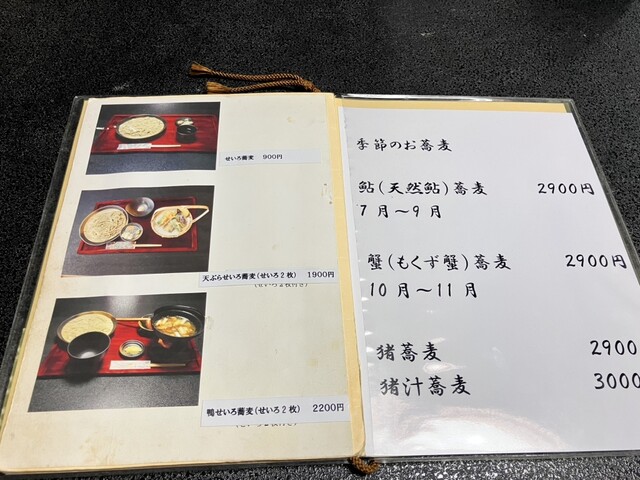 せいろ蕎麦 900円
天ぷらせいろ蕎麦(せいろ2枚) 1900円
(せいろ2枚付き)
鴨せいろ蕎麦(せいろ2枚) 2200円
(せいろ2枚付き)
季節のお蕎麦
鮎(天然鮎)蕎麦 2900円
7月〜9月
蟹(もくず蟹)蕎麦 2900円
10月〜11月
猪蕎麦 2900
猪汁蕎麦 3000